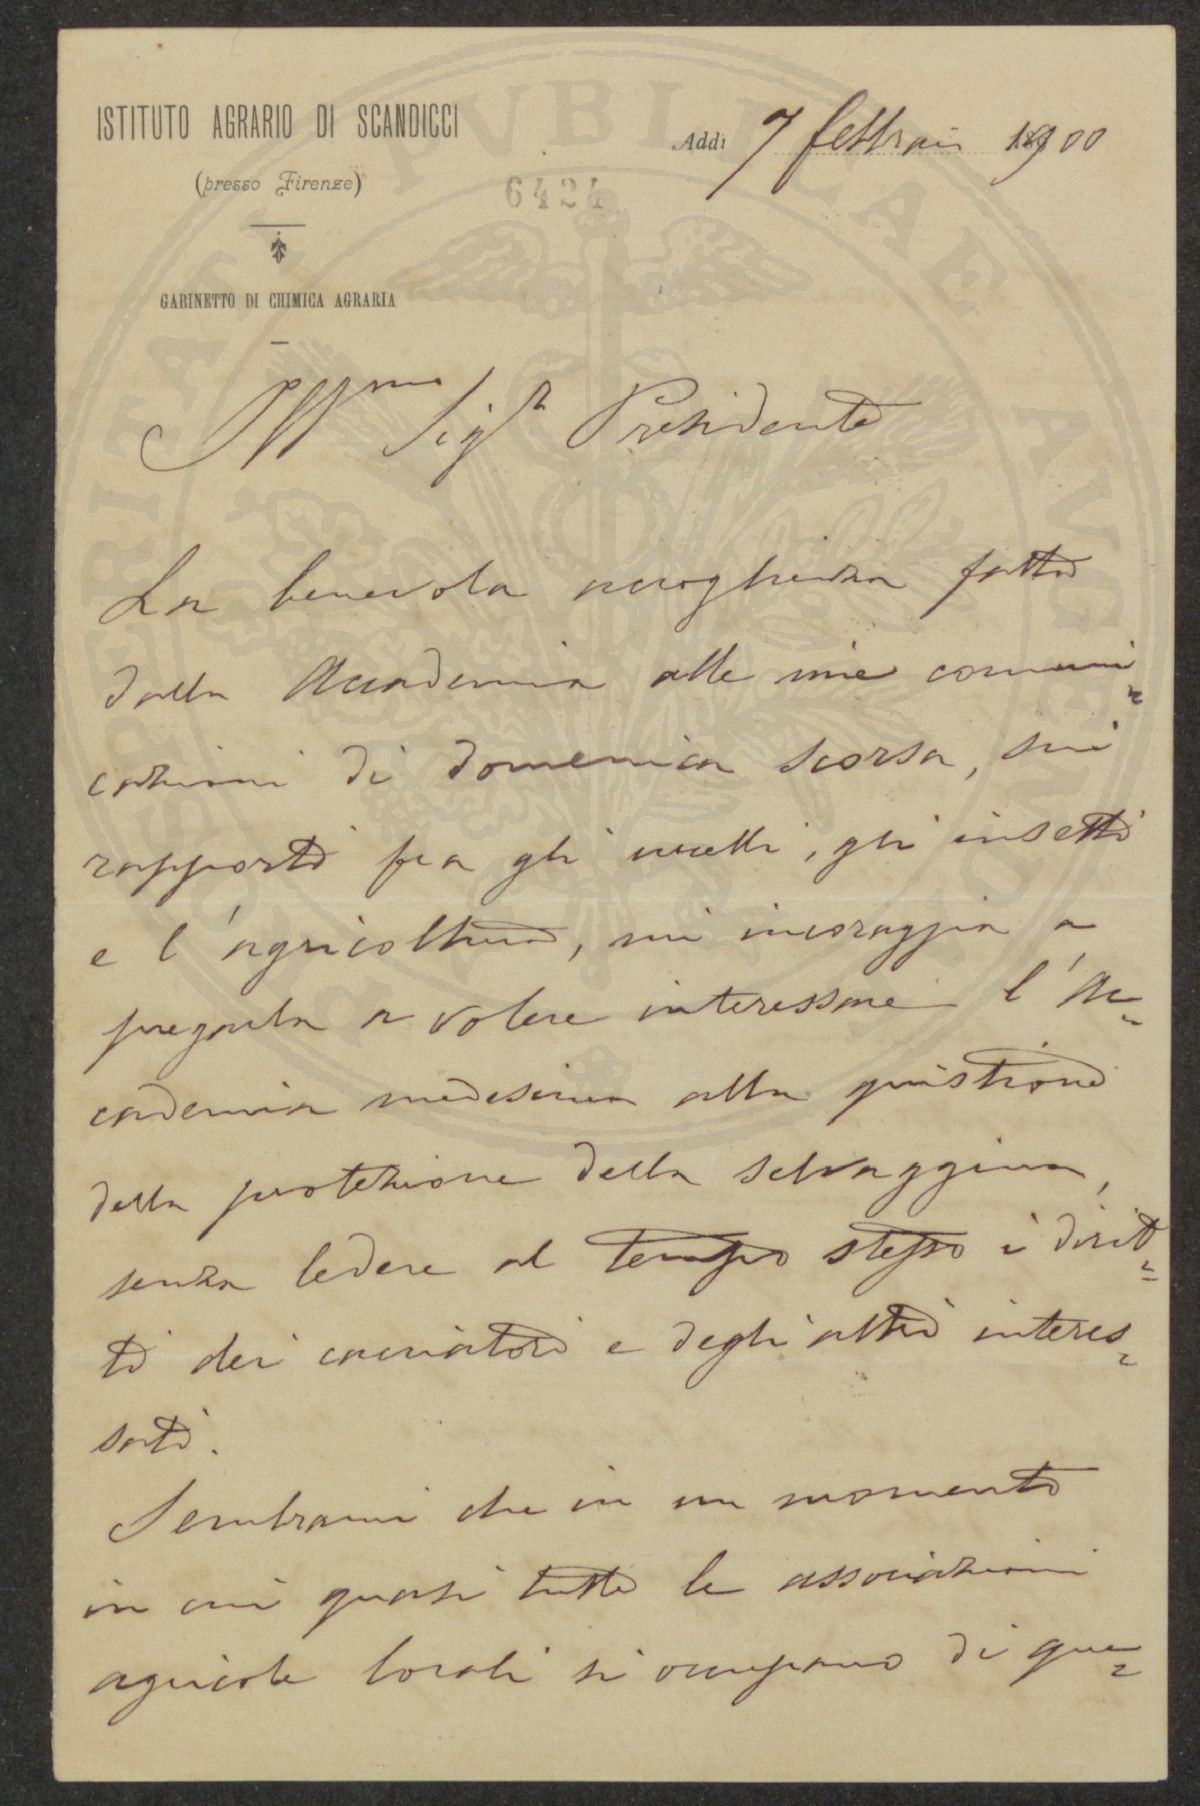 ISTITUTO AGRARIO DI SCANDICCI
(presso Firenze)
GABINETTO DI CHIMICA AGRARIA
Addì 7 febbraio 1900
6424
Ill.mo Sigr Presidente
La benevola accoglienza fatta
dalla Accademia alle mie comuni=
cazioni di domenica scorsa, sui
rapporti fra gli uccelli, gli insetti
e l'agricoltura, mi incoraggia a
pregarla a volere interessare l'Ac=
cademia medesima alla quistione
della protezione della selvaggina,
senza ledere al tempo stesso i dirit=
ti dei cacciatori e degli altri interes=
sati.
Sembrami che in un momento
in cui quasi tutte le associazioni
agricole locali si occupano di que=